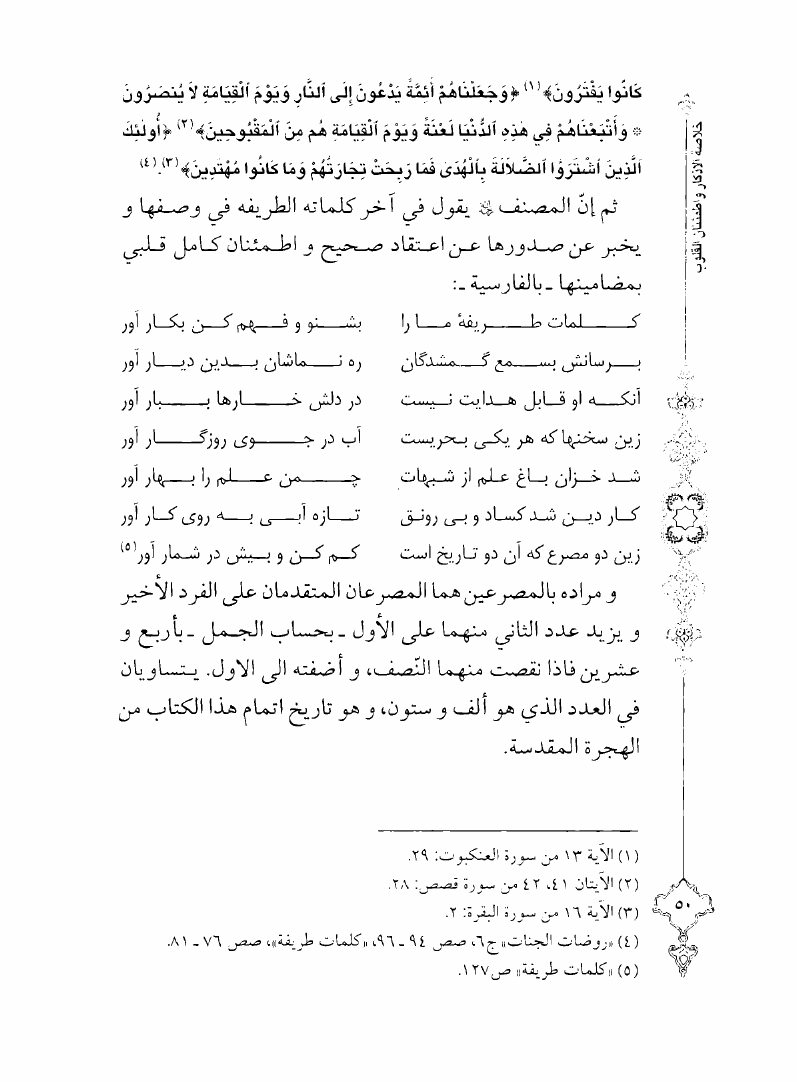 خلاصة الاذكار واطمئنان القلوب
كَانُوا يَفْتَرُونَ﴾(١) ﴿وَجَعَلْنَاهُمْ أَئِمَّةً يَدْعُونَ إِلَى ٱلنَّارِ وَيَوْمَ ٱلْقِيَامَةِ لاَ يُنصَرُونَ
* وَأَتْبَعْنَاهُمْ فِي هَٰذِهِ ٱلدُّنْيَا لَعْنَةً وَيَوْمَ ٱلْقِيَامَةِ هُم مِنَ ٱلْمَقْبُوحِينَ﴾(٢) ﴿أُولَٰئِكَ
ٱلَّذِينَ ٱشْتَرَوُا ٱلضَّلاَلَةَ بِٱلْهُدَىٰ فَمَا رَبِحَتْ تِجَارَتُهُمْ وَمَا كَانُوا مُهْتَدِينَ﴾(٣).(٤)
ثم إنّ المصنف يقول في آخر كلماته الطريفه في وصفها و
يخبر عن صدورها عن اعتقاد صحيح و اطمئنان كامل قلبي
بمضامينها ـ بالفارسية ـ:
كلمات طريفۀ ما را بشنو و فهم كن بكار آور
برسانش بسمع گمشدگان ره نماشان بدين ديار آور
آنكه او قابل هدايت نيست در دلش خارها ببار آور
زين سخنها كه هر يكى بحريست آب در جوى روزگار آور
شد خزان باغ علم از شبهات چمن علم را بهار آور
كار دين شد كساد و بى رونق تازه آبى به روى كار آور
زين دو مصرع كه آن دو تاريخ است كم كن و بيش در شمار آور(٥)
و مراده بالمصرعين هما المصرعان المتقدمان على الفرد الأخير
و يزيد عدد الثاني منهما على الأول ـ بحساب الجمل ـ بأربع و
عشرين فاذا نقصت منهما النّصف، و أضفته الى الاول. يتساويان
في العدد الذي هو ألف و ستون، و هو تاريخ اتمام هذا الكتاب من
الهجرة المقدسة.
(١) الآية ١٣ من سورة العنكبوت: ٢٩.
(٢) الآيتان ٤١، ٤٢ من سورة قصص: ٢٨.
(٣) الآية ١٦ من سورة البقرة: ٢.
(٤) «روضات الجنات» ج٦، صص ٩٤ ـ ٩٦، «كلمات طريفة»، صص ٧٦ ـ ٨١.
(٥) «كلمات طريفة» ص١٢٧.
٥٠